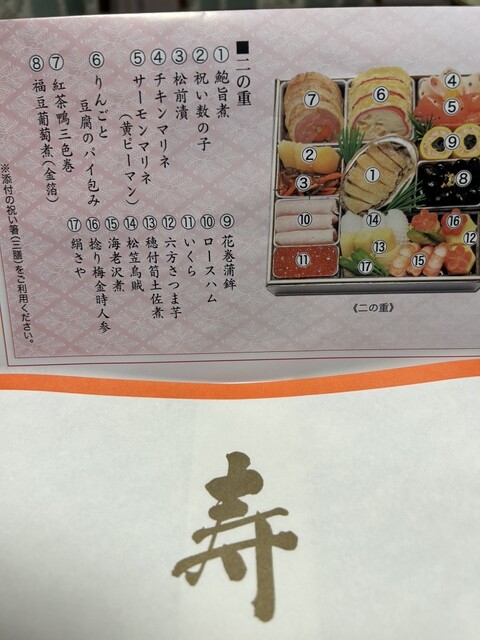 ■二の重
①鮑旨煮
②祝い数の子
③松前漬
④チキンマリネ
⑤サーモンマリネ
（黄ピーマン）
⑥りんごと
豆腐のパイ包み
⑦紅茶鴨三色巻
⑧福豆葡萄煮（金箔）
⑨花巻蒲鉾
⑩ロースハム
⑪いくら
⑫六方さつま芋
⑬穂付筍土佐煮
⑭松笠烏賊
⑮海老沢煮
⑯捻り梅金時人参
⑰絹さや
※添付の祝い箸（三膳）をご利用ください。
⑦
⑥
④
⑤
②
③
①
⑨
⑧
⑩
⑭
⑯
⑬
⑫
⑪
⑰
⑮
《二の重》
寿